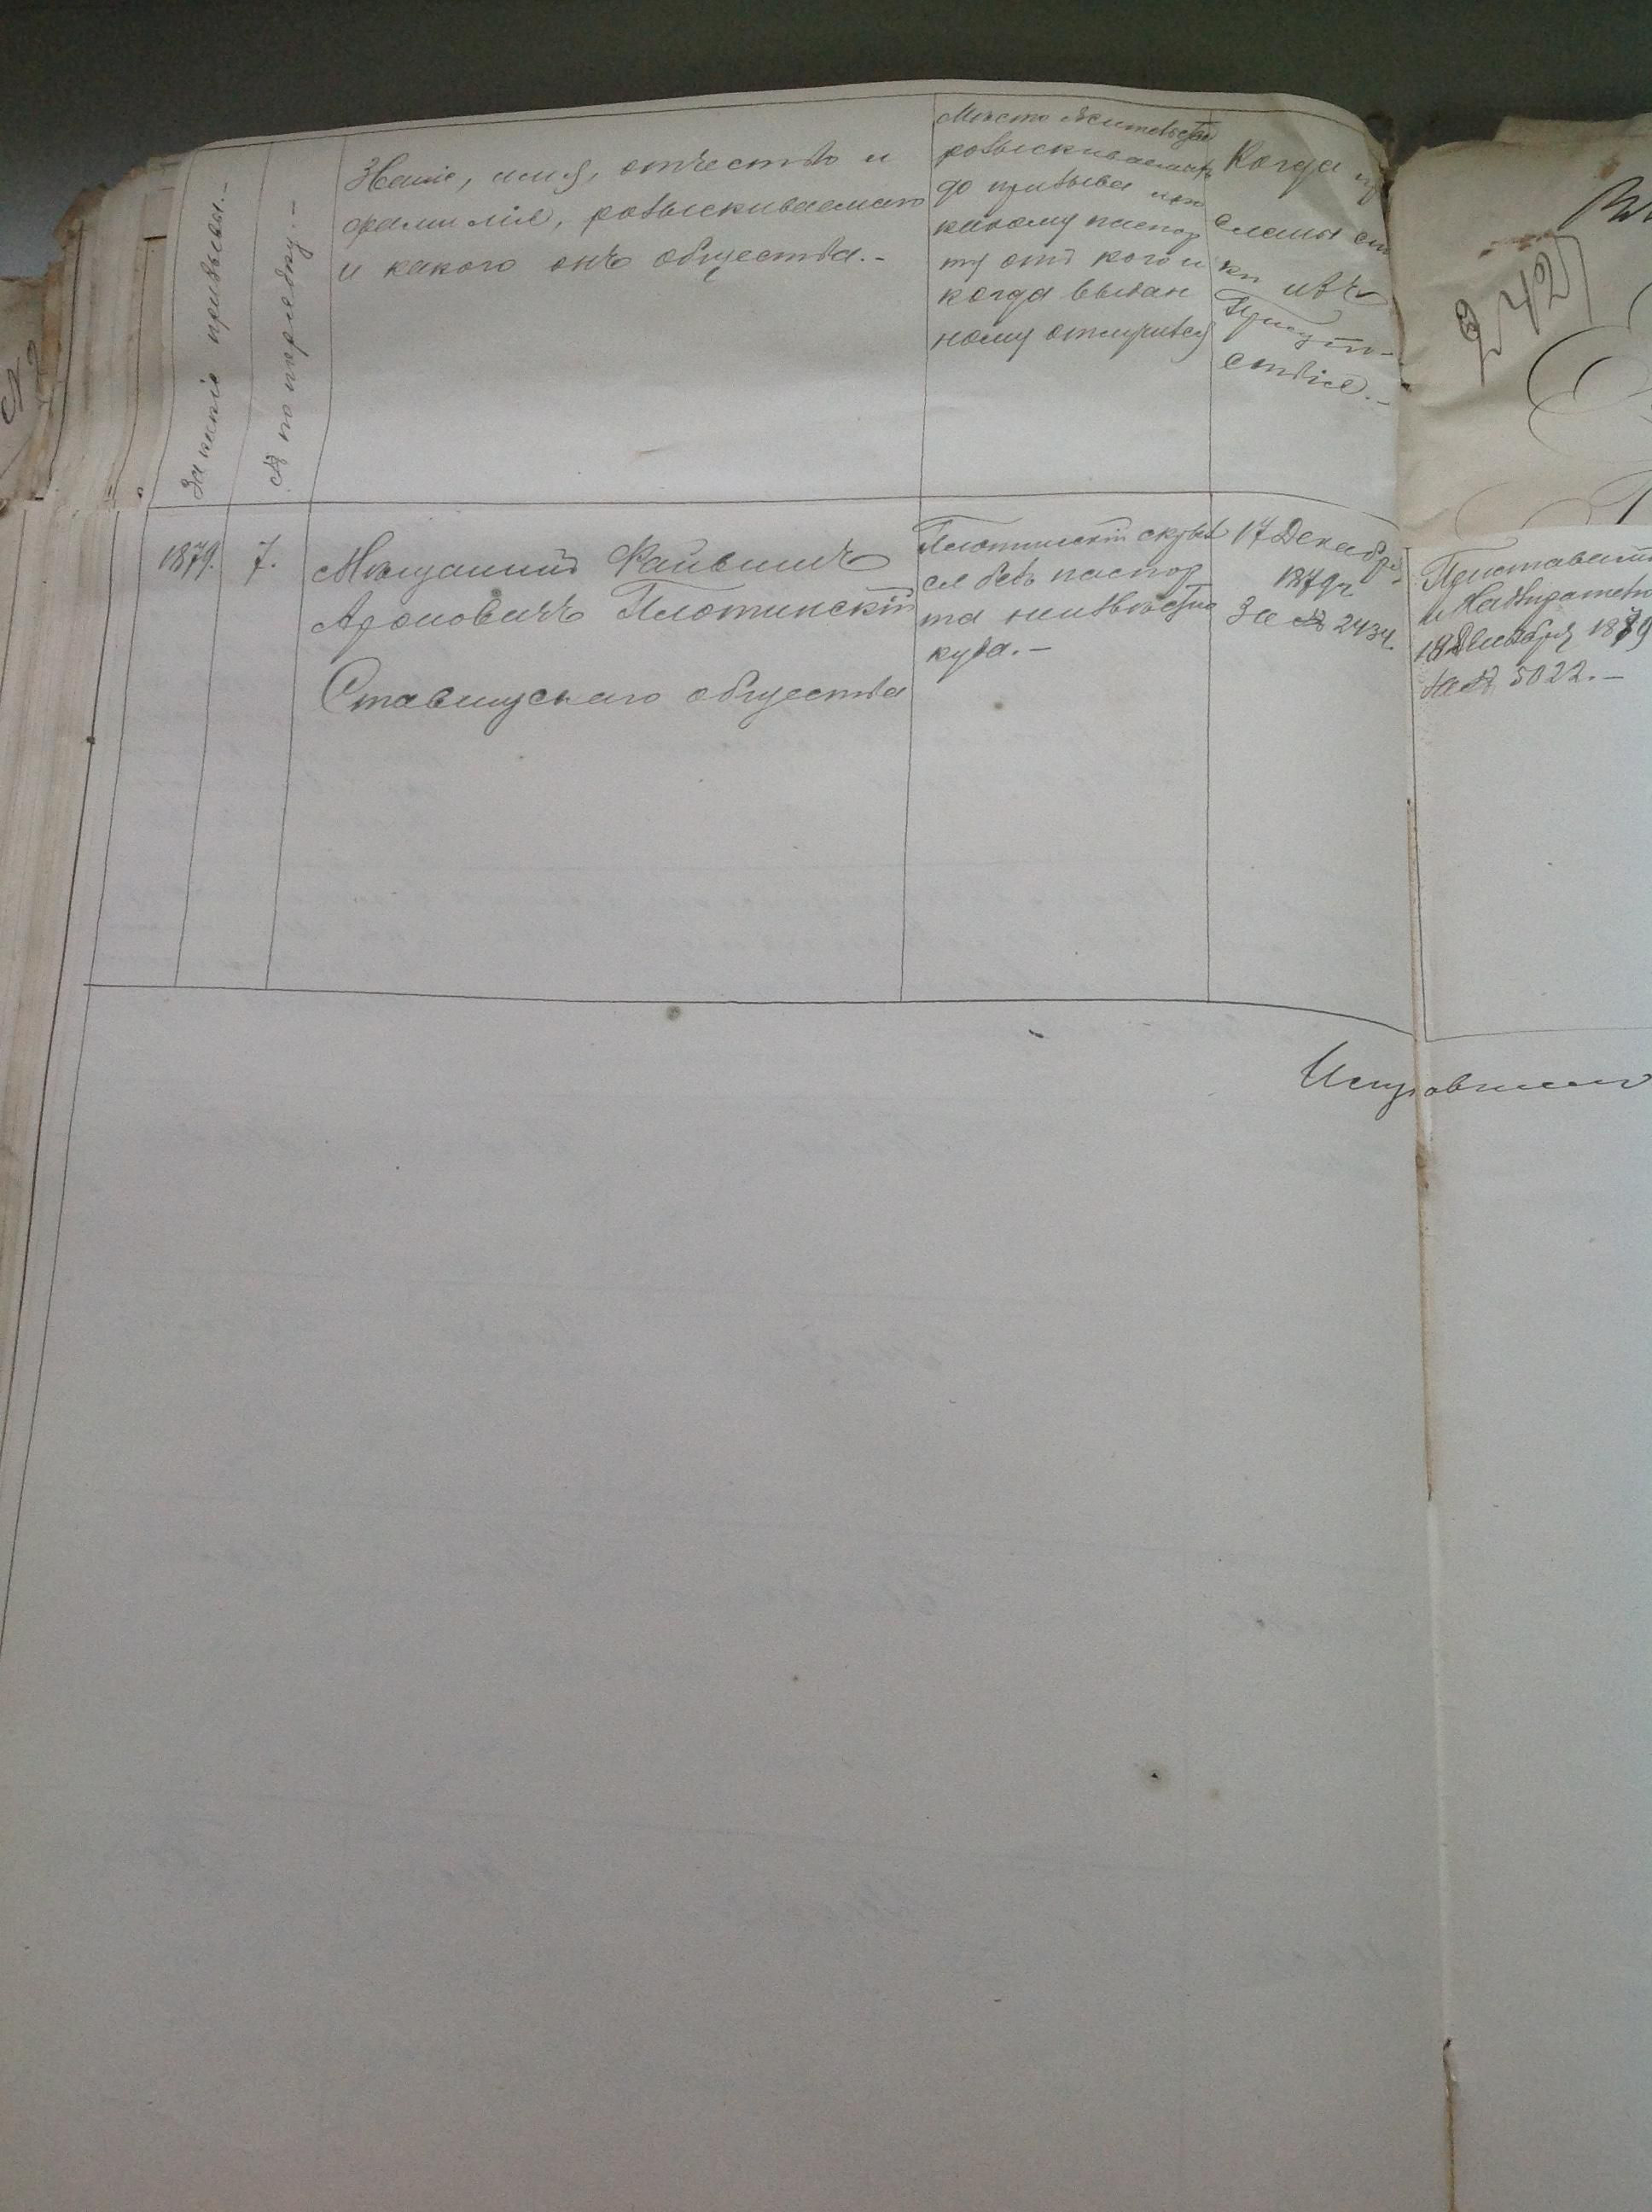 За какіе призывы.-
№ по порядку.-
Званіе, имя, отчество и
фамилія, розыскиваемаго
и какого онъ общества.-
Мѣсто жительства
розыскиваемаго
до призыва или
какому паспор
ту отъ кого и
когда выдан
ному отлучился
Когда
сланы
ки изъ
Присут-
ствія.-
242
1879.
7.
Мѣщанинъ Файвишъ
Ароновичъ Плотинскій
Ставищскаго общества
Плотинскій скрыл
ся безъ паспор
та неизвѣстно
куда.-
17 Декабря
1879 г.
За № 2434.
Приставамъ
и Надзирателю
18 Декабря 1879
за № 5022.-
Исправникъ